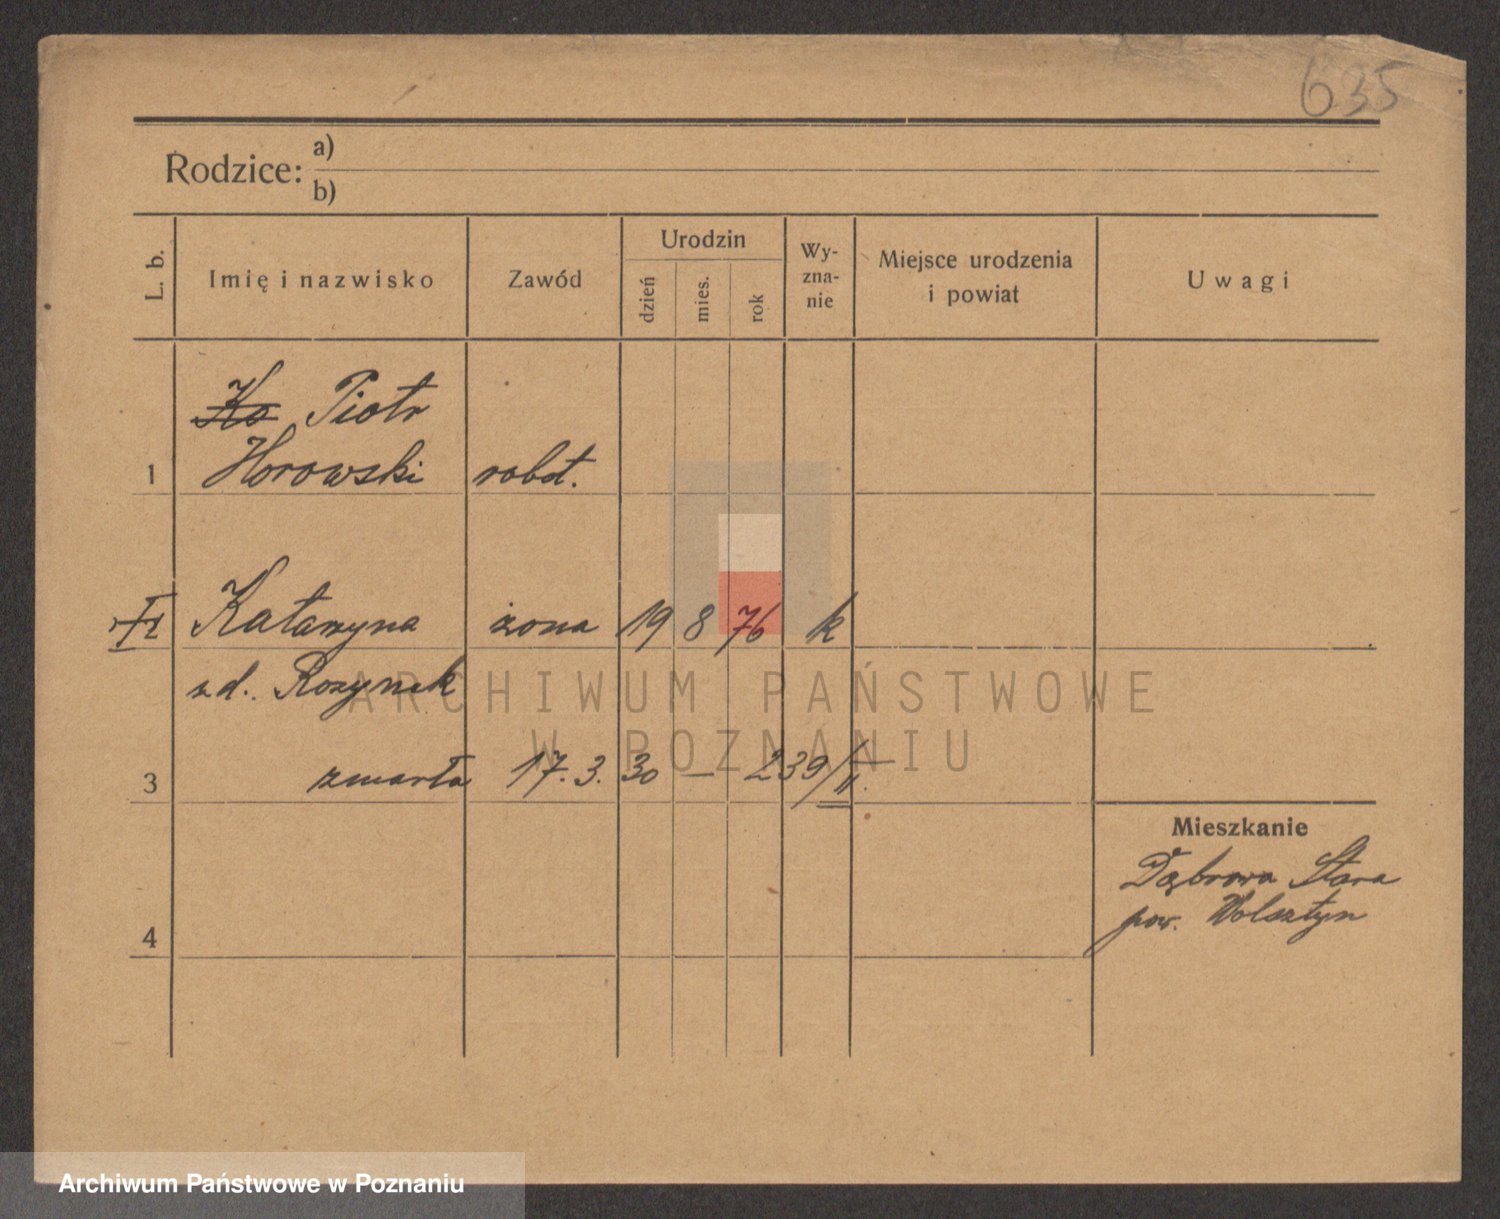 635
Rodzice: a)
b)
L. b.
Imię i nazwisko
Zawód
Urodzin
dzień
mies.
rok
Wy-
zna-
nie
Miejsce urodzenia
i powiat
Uwagi
Ko Piotr
1 Horowski robot.
Katarzyna żona 19 8 76 k
zd. Rozynek
3 zmarła 17.3.30 — 239/II
Mieszkanie
Dąbrowa Stara
pow. Wolsztyn
4
ARCHIWUM PAŃSTWOWE
W POZNANIU
Archiwum Państwowe w Poznaniu